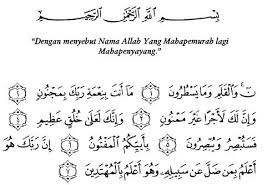 بِسْمِ اللَّهِ الرَّحْمَٰنِ الرَّحِيمِ
"Dengan menyebut Nama Allah Yang Mahapemurah lagi
Mahapenyayang."
نٓ ۚ وَالْقَلَمِ وَمَا يَسْطُرُونَ ۝١ مَا أَنتَ بِنِعْمَةِ رَبِّكَ بِمَجْنُونٍ
۝٢ وَإِنَّ لَكَ لَأَجْرًا غَيْرَ مَمْنُونٍ ۝٣ وَإِنَّكَ لَعَلَىٰ خُلُقٍ عَظِيمٍ ۝٤
فَسَتُبْصِرُ وَيُبْصِرُونَ ۝٥ بِأَييِّكُمُ الْمَفْتُونُ ۝٦ إِنَّ رَبَّكَ هُوَ
أَعْلَمُ بِمَن ضَلَّ عَن سَبِيلِهِ وَهُوَ أَعْلَمُ بِالْمُهْتَدِينَ ۝٧